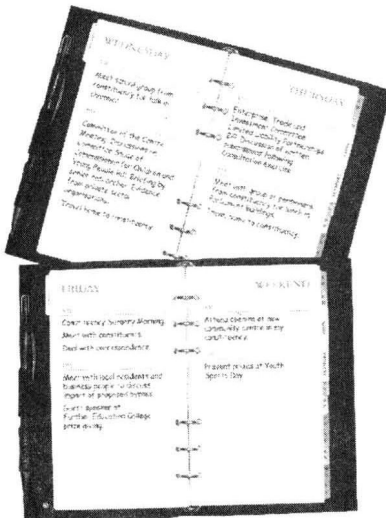 WEDNESDAY
Meet school group from
constituency for talk in
chamber
Committee of the Centre
Meeting. Discussion of
Committee Stage of
Commissioner for Children and
Young People Bill. Briefing by
senior researcher. Evidence
from private sector
organisations.
Travel home to constituency
THURSDAY
Enterprise, Trade and
Investment Committee
Limited Liability Partnerships
Bill. Discussion of written
submissions following
Consultation Exercise
Meet with group of pensioners
from constituency
Parliament Buildings.
Travel home to constituency.
FRIDAY
Constituency Surgery Morning.
Meet with constituents.
Deal with correspondence.
Meet with local residents and
business people to discuss
impact of proposed bypass.
Guest speaker at
Further Education College
prize giving.
WEEKEND
Attend opening of new
community centre in my
constituency.
Present prizes at Youth
Sports Day